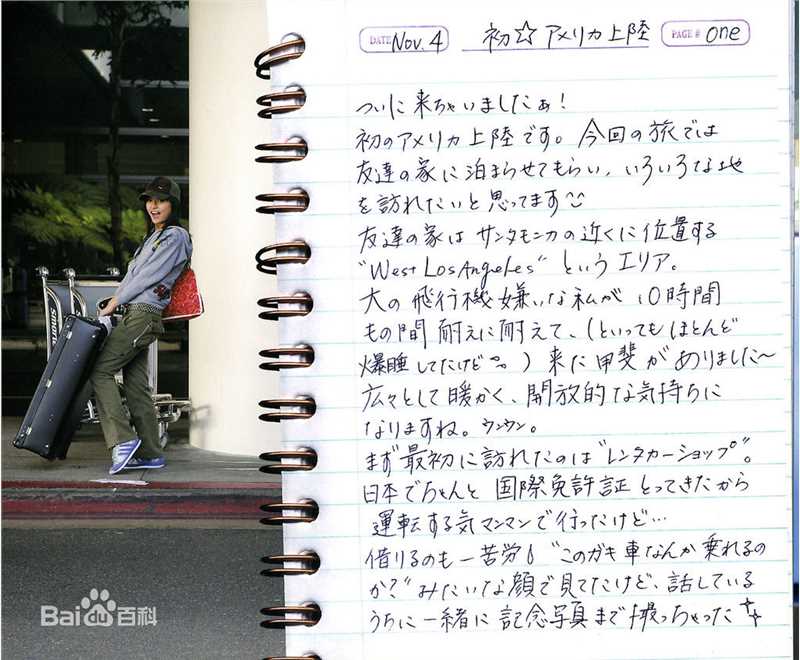 DATE Nov. 4 初☆アメリカ上陸 PAGE # one
ついに来ちゃいましたぁ!
初のアメリカ上陸です。今回の旅では
友達の家に泊まらせてもらい、いろいろな地
を訪れたいと思ってます
友達の家はサンタモニカの近くに位置する
"West Los Angeles" というエリア。
大の飛行機嫌いな私が10時間
もの間耐えに耐えて、(といってもほとんど
爆睡してたけど。)来た甲斐がありました〜
広々として暖かく、開放的な気持ちに
なりますね。ウンウン。
まず最初に訪れたのは"レンタカーショップ"。
日本でちゃんと国際免許証とってきたから
運転する気マンマンで行ったけど…
借りるのも一苦労 "このガキ車なんか乗れるの
か?"みたいな顔で見てたけど、話している
うちに一緒に記念写真まで撮っちゃった
smarte
Baidu百科